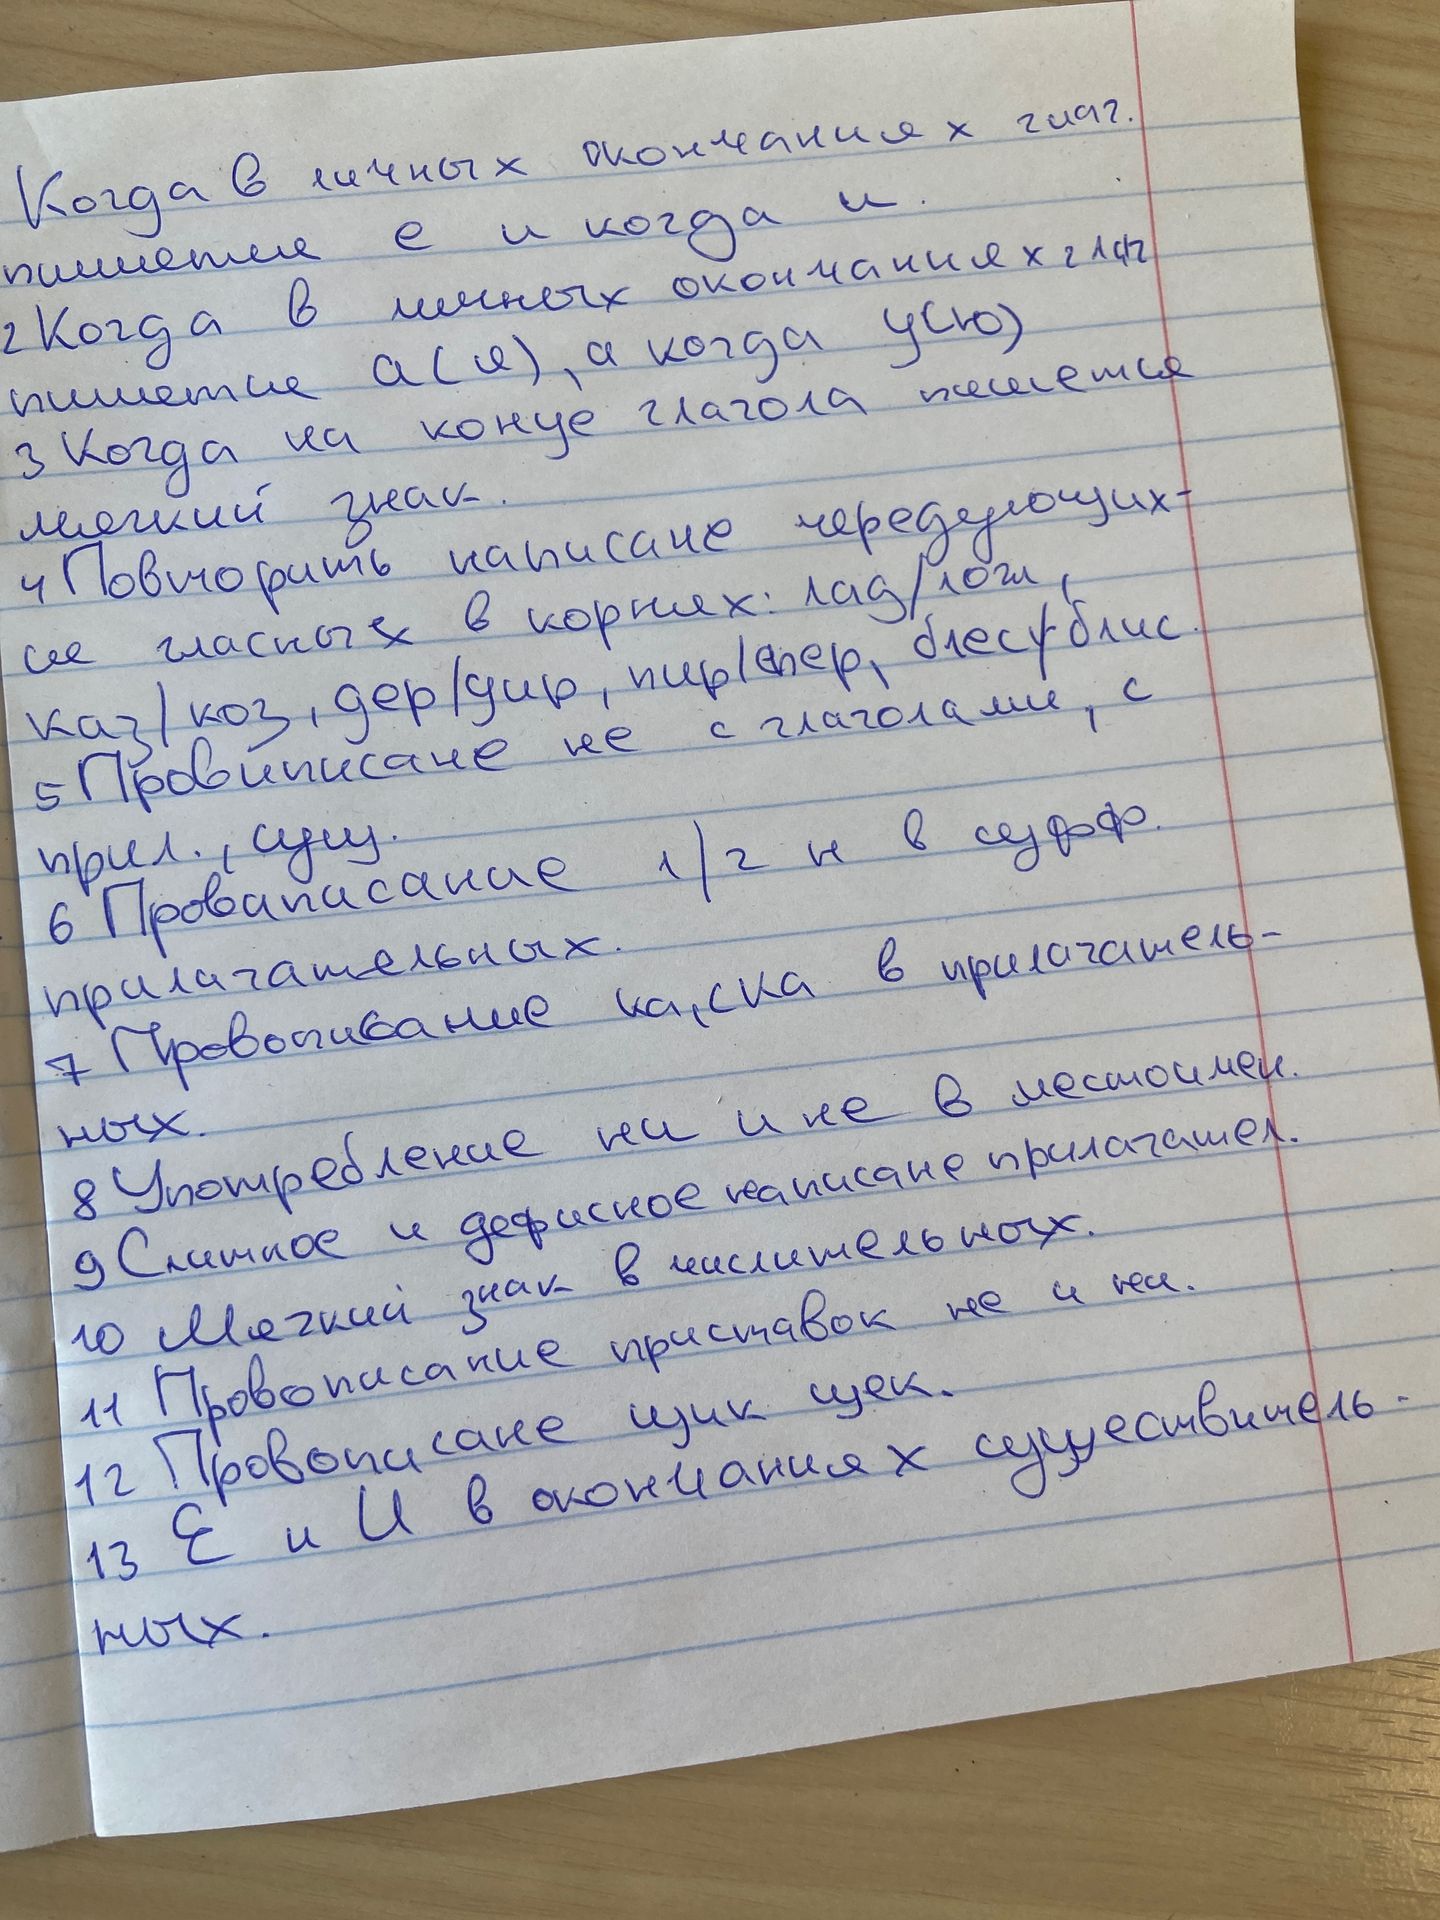 Когда в личных окончаниях глаг.
пишется е и когда и.
2 Когда в личных окончаниях глаг
пишется а(я), а когда у(ю)
3 Когда на конце глагола пишется
мягкий знак.
4 Повторить написане чередующих-
ся гласных в корнях: лад/лож,
каз/коз, дер/дир, пир/пер, блест/блис.
5 Провиписане не с глаголами, с
прил., сущ.
6 Проваписание 1/2 н в суфф.
прилагательных.
7 Провописание ка, ска в прилагатель-
ных.
8 Употребление ни и не в местоимен.
9 Слитное и дефисное написане прилагател.
10 Мягкий знак в числительных.
11 Провописание приставок не и ни.
12 Провописане щик щек.
13 Е и И в окончаниях существитель-
ных.